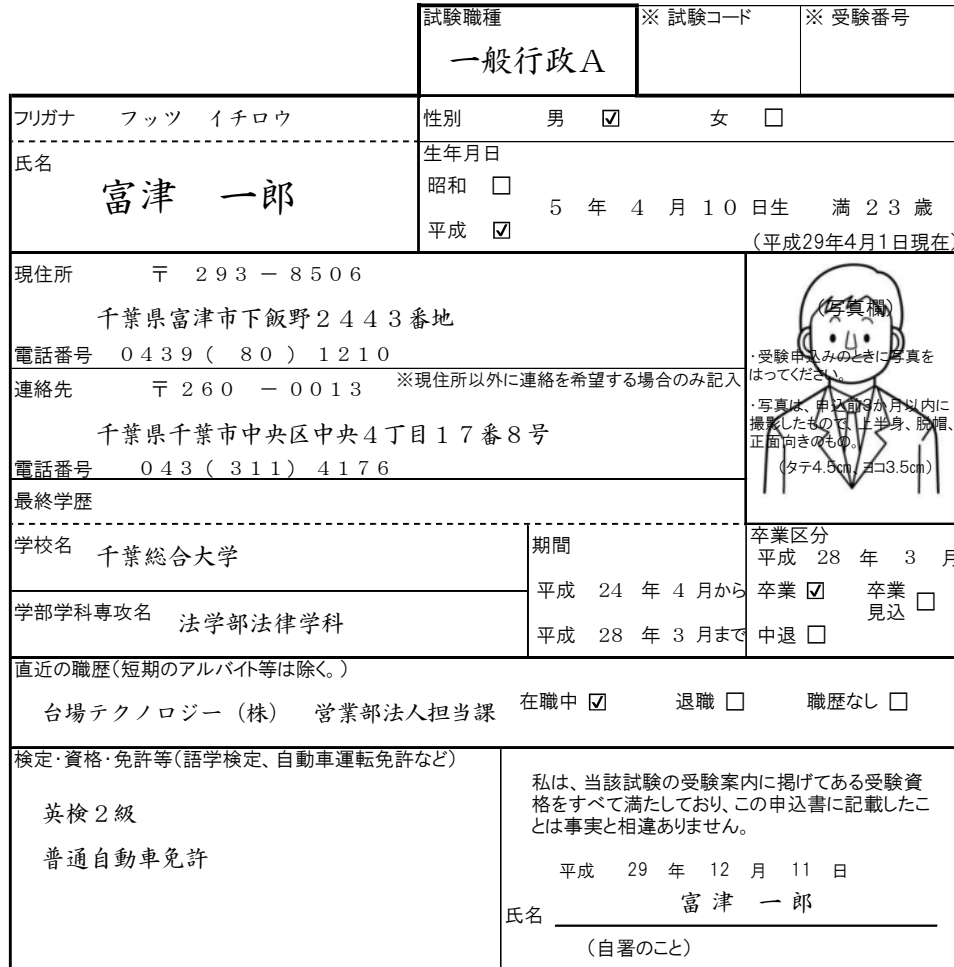 試験職種
※ 試験コード
※ 受験番号
一般行政A
フリガナ フッツ イチロウ
性別 男 ☑ 女 □
氏名
富津 一郎
生年月日
昭和 □
平成 ☑
5 年 4 月 10 日生 満 23 歳
(平成29年4月1日現在)
現住所 〒 293-8506
千葉県富津市下飯野2443番地
電話番号 0439( 80 )1210
連絡先 〒260 -0013 ※現住所以外に連絡を希望する場合のみ記入
千葉県千葉市中央区中央4丁目17番8号
電話番号 043(311)4176
(写真欄)
・受験申込みのときに写真を
はってください。
・写真は、申込前3か月以内に
撮影したもので、上半身、脱帽、
正面向きのもの。
(タテ4.5㎝、ヨコ3.5㎝)
最終学歴
学校名 千葉総合大学
学部学科専攻名 法学部法律学科
期間
平成 24 年 4 月から
平成 28 年 3 月まで
卒業区分
平成 28 年 3 月
卒業 ☑ 卒業
見込 □
中退 □
直近の職歴(短期のアルバイト等は除く。)
台場テクノロジー(株) 営業部法人担当課 在職中 ☑ 退職 □ 職歴なし □
検定・資格・免許等(語学検定、自動車運転免許など)
英検2級
普通自動車免許
私は、当該試験の受験案内に掲げてある受験資
格をすべて満たしており、この申込書に記載したこ
とは事実と相違ありません。
平成 29 年 12 月 11 日
富津 一郎
氏名
(自署のこと)